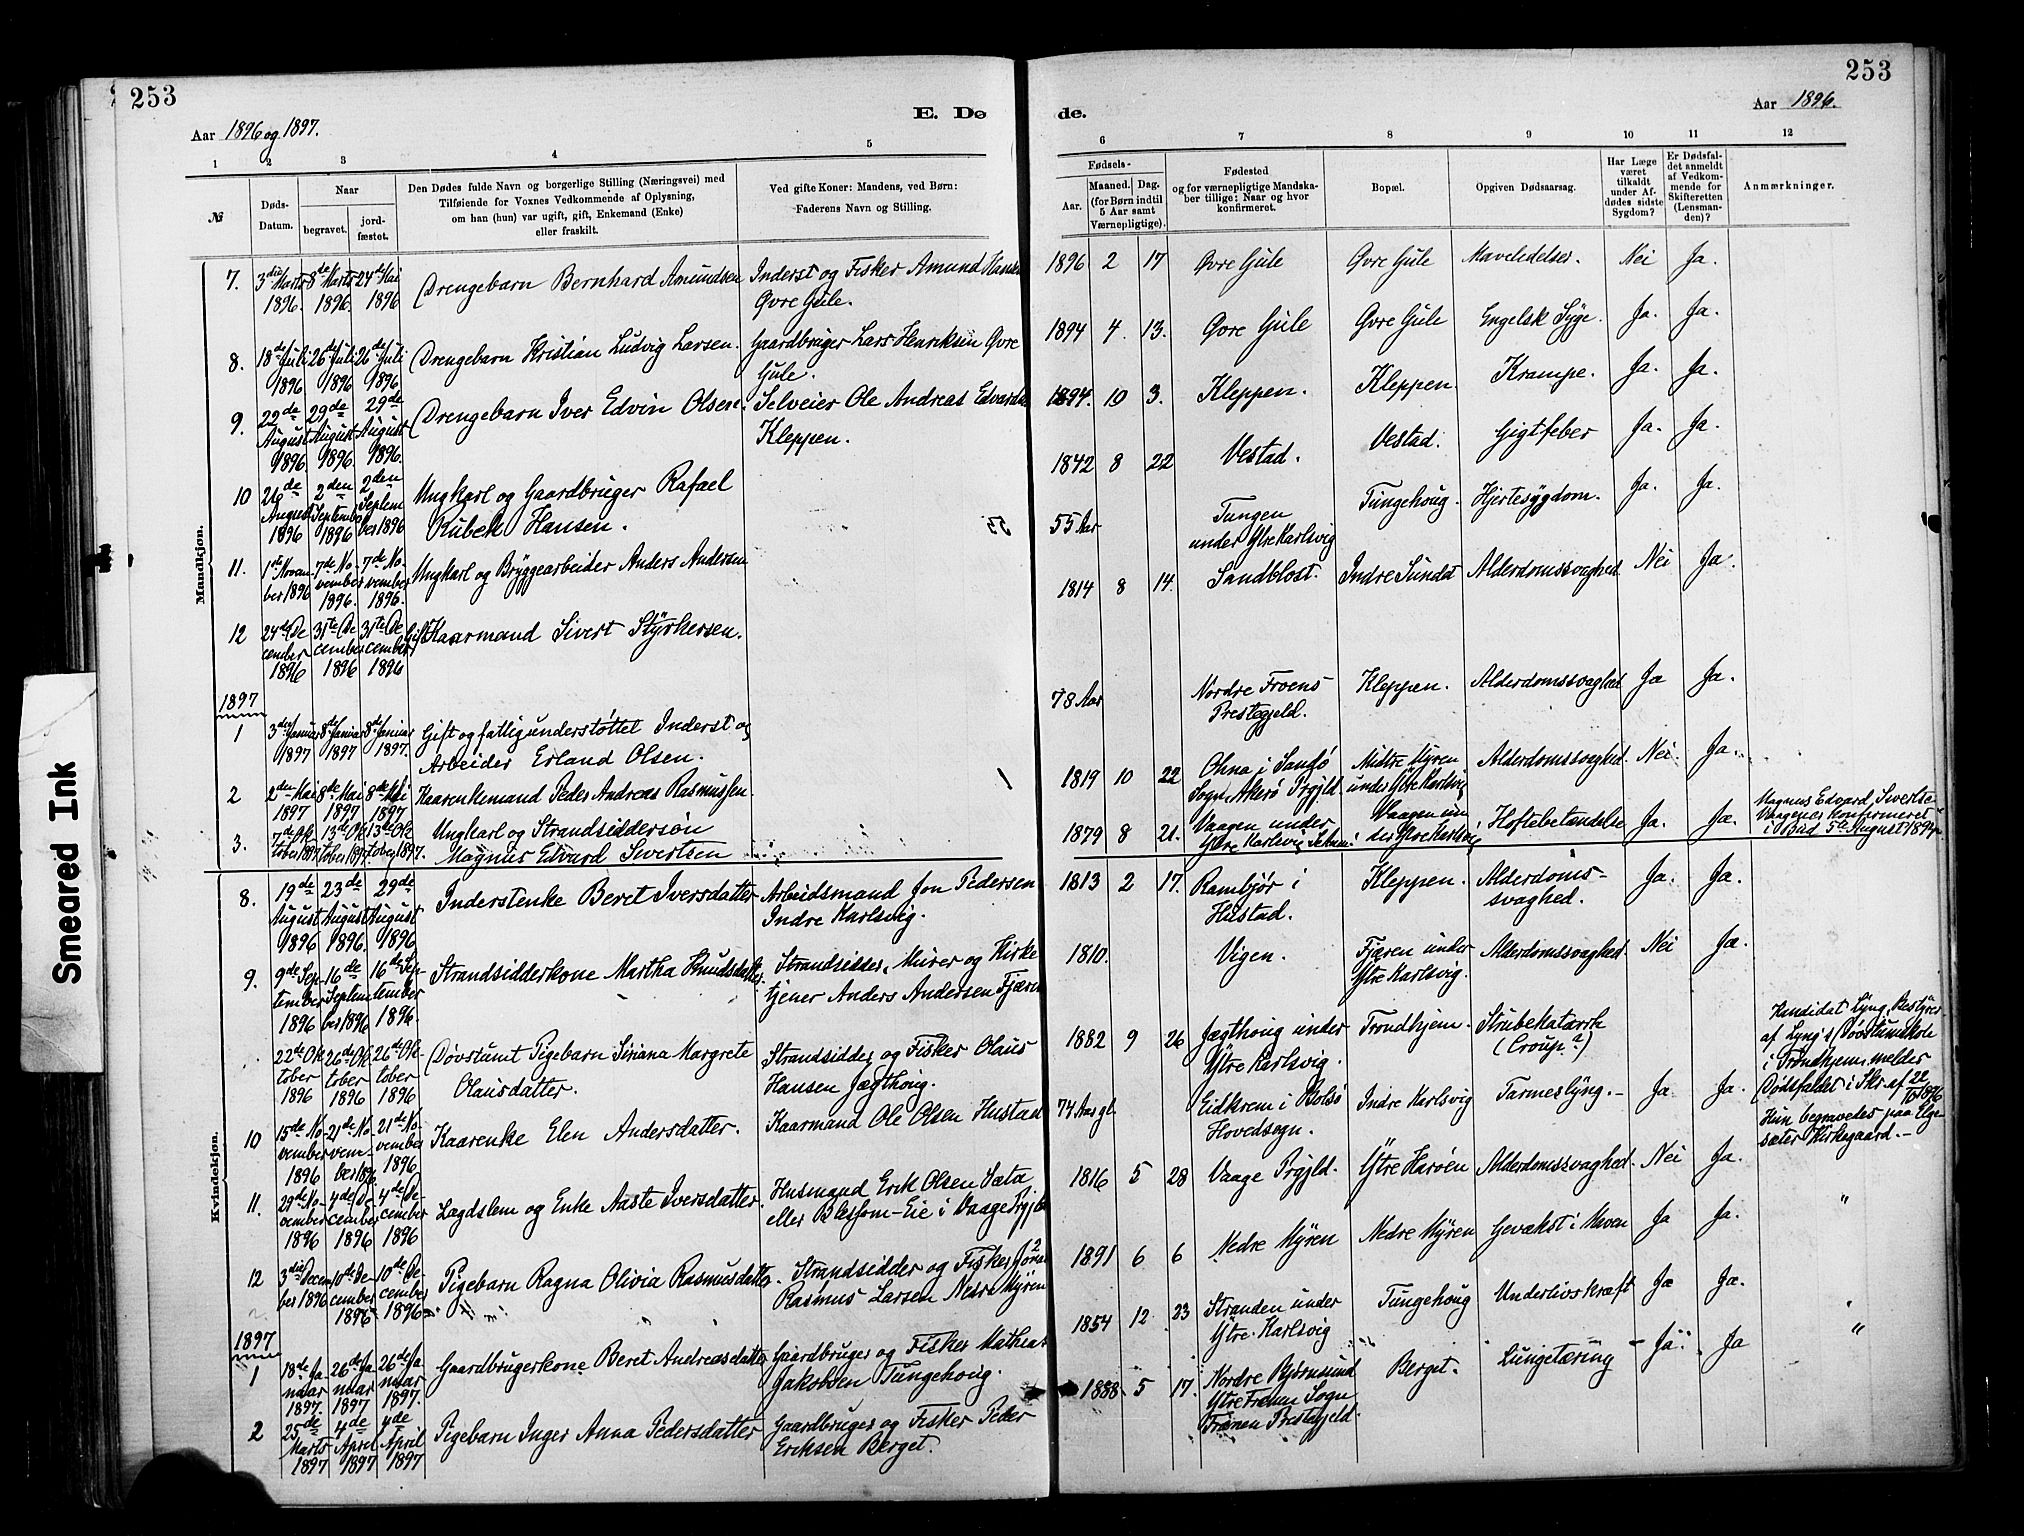 253
E. Dø
Aar 1896 og 1897.
1 2 3 4 5
№
Døds-
Datum.
Naar
begravet.
jord-
fæstet.
Den Dødes fulde Navn og borgerlige Stilling (Næringsvei) med
Tilføiende for Voxnes Vedkommende af Oplysning,
om han (hun) var ugift, gift, Enkemand (Enke)
eller fraskilt.
Ved gifte Koner: Mandens, ved Børn:
Faderens Navn og Stilling.
Mandkjøn.
7. 3die Marts 1896. 8de Marts 1896. 24de Mai 1896 Drengebarn Bernhard Amundsen Inderst og Fisker Amund Hansen
Øvre Gule.
8. 18de Juli 1896 26de Juli 1896 26de Juli 1896 Drengebarn Kristian Ludvig Larsen. Gaardbruger Lars Henriksen Øvre
Gule.
9. 22de August 1896 29de August 1896. 29de August 1896. Drengebarn Iver Edvin Olsen. Selveier Ole Andreas Edvardsen
Kleppen.
10 26de August 1896 2den September 1896 2den September 1896 Ungkarl og Gaardbruger Rafael
Rubek Hansen.
11. 1ste November 1896 7de November 1896. 7de November 1896. Ungkarl og Bryggearbeider Anders Andersen
12 24de December 1896 31te December 1896 31te December 1896 Gift Kaarmand Sivert Styrkersen.
1897
1 3die Januar 1897 8de Januar 1897 8de Januar 1897. Gift og fattigunderstøttet Inderst og
Arbeider Erland Olsen.
2 2den Mai 1897 8de Mai 1897 8de Mai 1897 Kaarenkemand Peder Andreas Rasmussen.
3. 7de Oktober 1897 13de Oktober 1897. 13de Oktober 1897. Ungkarl og Strandsiddersøn
Magnus Edvard Sivertsen
Kvindekjøn.
8. 19de August 1896 23de August 1896. 29de August 1896 Inderstenke Beret Iversdatter Arbeidsmand Jon Pedersen
Indre Karlsvig.
9. 9de September 1896 16de September 1896 16de September 1896. Strandsidderkone Martha Knudsdatter. Strandsidder, Murer og Kirke
tjener Anders Andersen Fjæren
22de Oktober 1896 26de Oktober 1896 26de Oktober 1896 Døvstumt Pigebarn Siriana Margrete
Olausdatter. Strandsidder og Fisker Olaus
Hansen Jægthoug.
10 15de November 1896 21de November 1896 21de November 1896 Kaarenke Elen Andersdatter. Kaarmand Ole Olsen Hustad
11. 29de November 1896 4de December 1896 4de December 1896 Lægdslem og Enke Aaste Iversdatter. Husmand Erik Olsen Sæta
eller Blessom-Eie i Vaage Prgjld.
12 3die December 1896 10de December 1896 10de December 1896 Pigebarn Ragna Olivia Rasmusdatter. Strandsidder og Fisker
Rasmus Larsen Nedre Myren
1897
1 18de Januar 1897. 26de Januar 1897 26de Januar 1897. Gaardbrugerkone Beret Andreasdatter Gaardbruger og Fisker Mathias
Jakobsen Tungehoug.
2 25de Marts 1897 4de April 1897 4de April 1897 Pigebarn Inger Anna Pedersdatter Gaardbruger og Fisker Peder
Eriksen Berget.
Smeared Ink
253
de.
Aar 1896.
6 7 8 9 10 11 12
Fødsels-
Aar.
Maaned. Dag.
(for Børn indtil
5 Aar samt
Værnepligtige).
Fødested
og for værnepligtige Mandska-
ber tillige: Naar og hvor
konfirmeret.
Bopæl.
Opgiven Dødsaarsag.
Har Læge
været
tilkaldt
under Af-
dødes sidste
Sygdom?
Er Dødsfal-
det anmeldt
af Vedkom-
mende for
Skifteretten
(Lensman-
den)?
Anmærkninger.
1896 2 17 Øvre Gule Øvre Gule Maveledelser. Nei Ja.
1894 4 13. Øvre Gule Øvre Gule Engelsk Syge. Ja. Ja.
1894. 10 3. Kleppen. Kleppen. Krampe. Ja. Ja.
1842 8 22 Vestad. Vestad. Gigtfeber Ja. Ja.
55 Aar Tungen
under Ytre Karlsvig Tungehoug. Hjertesygdom. Ja. Ja.
1814 8 14. Sandblost. Indre Sundet Alderdomssvaghed Nei Ja.
78 Aar Nordre Froens
Prestegjeld. Kleppen. Alderdomssvaghed Ja Ja.
1819 10 22 Ohna i Sandø
Sogn Akerø Prgjld. Midtre Myren
under Ytre Karlsvig Alderdomssvaghed. Nei. Ja.
1879 8 21. Vaagen under
Ytre Karlsvig Vaagen un
der Ytre Karlsvig Hoftebetændelse Ja. Ja. Magnus Edvard Sivertsen
Vaagenes Konfirmeret
i Bud 5te August 1894.
1813 2 17. Rambjør i
Hustad. Kleppen. Alderdoms-
svaghed. Ja. Ja.
1810. Vigen. Fjæren under
Ytre Karlsvig. Alderdomssvaghed. Nei Ja.
1882 9 26 Jægthoug under
Ytre Karlsvig. Trondhjem. Strubekatarrh
(Croup?) Kandidat Lyng, Bestyrer
af Lyng's Døvstumskole
i Trondhjem, melder
Dødsfaldet i Skr. af 22/10 1896
Hun begravedes paa Elge-
sæter Kirkegaard.
74 Aar gl. Eidkrem i Bolsø
Hovedsogn. Indre Karlsvig Tarmeslyng. Ja Ja.
1816 5 28 Vaage Prgjld. Ytre Harøen Alderdomssvaghed. Nei Ja. "
1891 6 6 Nedre Myren Nedre Myren Gevækst i Maven Ja Ja.
1854 12 23 Stranden under
Ytre Karlsvig Tungehoug Underlivskræft Ja Ja. "
1888 5 17. Nordre Bjørnsund
Ytre Frænen Sogn
Frænen Prestegjeld. Berget. Lungetæring Ja. Ja "